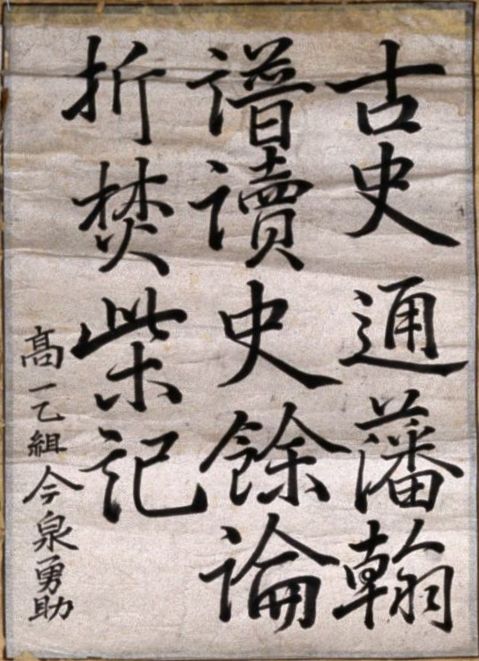 古史通藩翰
譜讀史餘論
折焚柴記
高一乙組今泉勇助